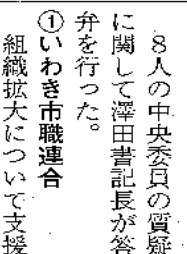 ８人の中央委員の質疑
に関して澤田書記長が答
弁を行った。
①いわき市職連合
組織拡大について支援